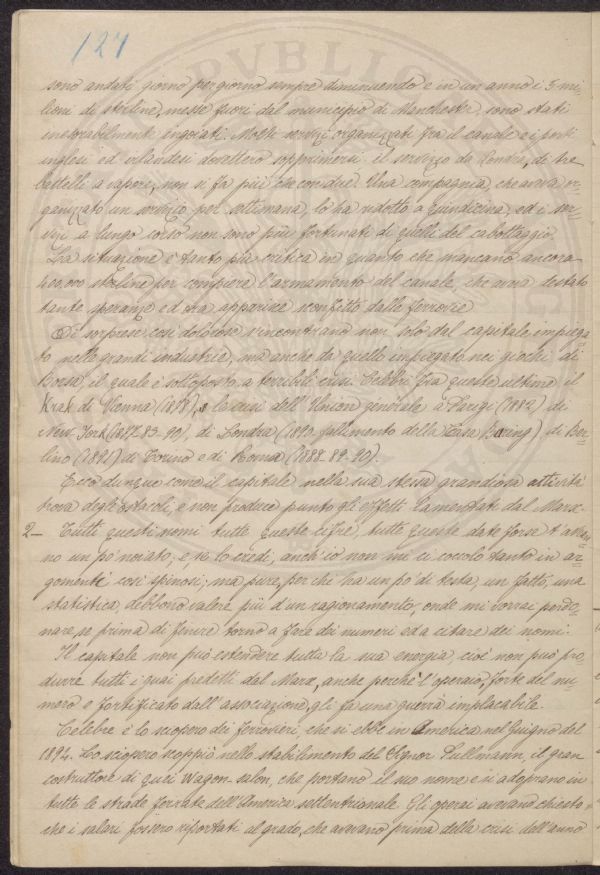 127
sono andati giorno per giorno sempre diminuendo e in un anno i 5 mi-
lioni di sterline, messe fuori dal municipio di Manchester, sono stati
inesorabilmente ingoiati. Molti servizi organizzati fra il canale e i porti
inglesi ed irlandesi dovettero sopprimersi: il servizio da Londra, di tre
battelli a vapore, non si fa più che con due. Una compagnia, che aveva or-
ganizzato un servizio per settimana, lo ha ridotto a quindicina, ed i ser-
vizi a lungo corso non sono più fortunati di quelli del cabottaggio.
La situazione è tanto più critica in quanto che mancano ancora
400,000 sterline per compiere l'armamento del canale, che avea destato
tante speranze ed ora apparisce sconfitto dalle ferrovie
Di sorprese così dolorose s'incontrano non solo dal capitale impiega-
to nelle grandi industrie, ma anche da quello impiegato nei giochi di
Borsa, il quale è sottoposto a terribili crisi. Celebri fra queste ultime il
Krak di Vienna (1873), e la crisi dell'Union générale a Parigi (1882) di
New-York (1877. 83. 90), di Londra (1890. fallimento della Casa Baring) di Ber-
lino (1891) di Torino e di Roma (1888. 89. 90).
Ecco dunque come il capitale nella sua stessa grandiosa attività
trova degli ostacoli, e non produce punto gli effetti lamentati dal Marx.
2_ Tutti questi nomi tutte queste cifre, tutte queste date forse t'avran-
no un po' noiato; e, tu lo credi, anch'io non mi ci coccolo tanto in ar-
gomenti così spinosi; ma pure, per chi ha un po' di testa, un fatto, una
statistica, debbono valere più d'un ragionamento, onde mi vorrai perdo-
nare, se prima di finire torno a fare dei numeri ed a citare dei nomi.
Il capitale non può estendere tutta la sua energia, cioè non può pro-
durre tutti i guai predetti dal Marx, anche perché l'operaio, forte del nu-
mero e fortificato dall'associazione, gli fa una guerra implacabile.
Celebre è lo sciopero di ferrovieri, che si ebbe in America nel Guigno del
1894. Lo sciopero scoppiò nello stabilimento del Signor Pullmann, il gran
costruttore di quei Wagon-salon, che portano il suo nome e si adoprano in
tutte le strade ferrate dell'America settentrionale. Gli operai avevano chiesto,
che i salari fossero riportati al grado, che avevano prima della crisi dell'anno